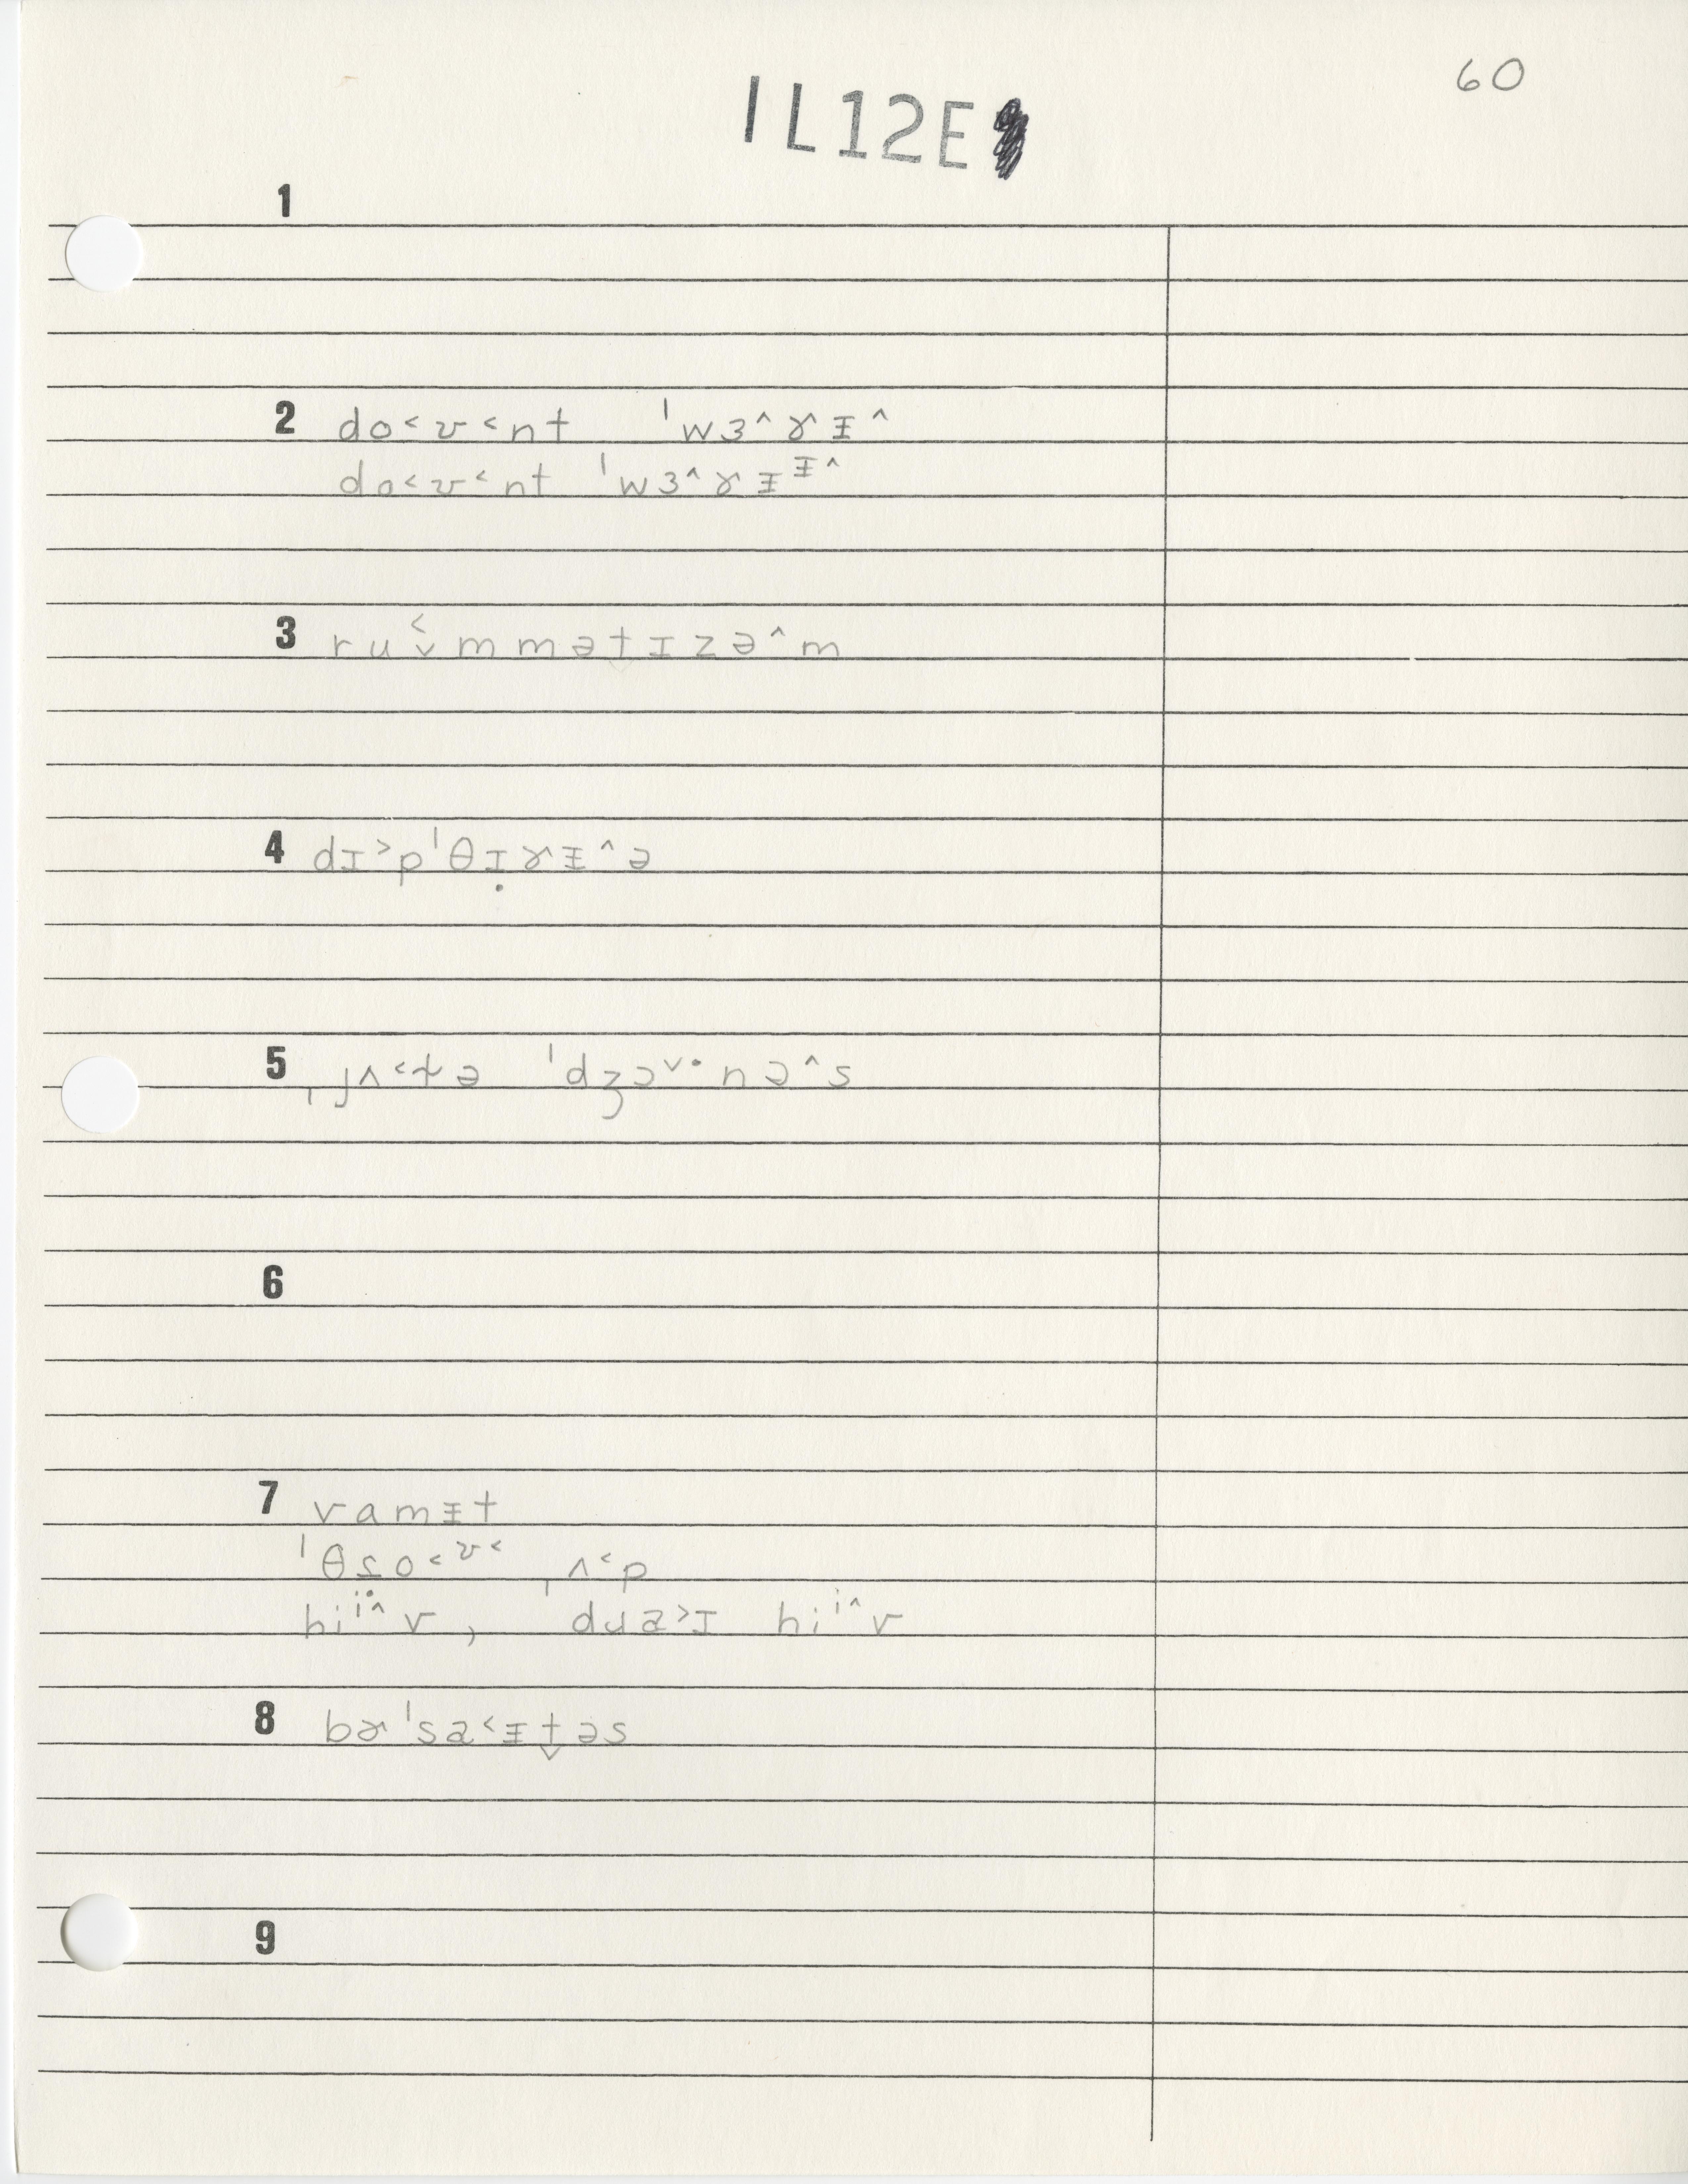 60
1L12E
1
2 do˂ʊ˂nt ˈwɜ˄ɤᵻ˄
do˂ʊ˂nt ˈwɜ˄ɤɪᵻ˄
3 ru˂˅mmətɪzə˄m
4 dɪ˃pˈθɪ̣ɤᵻ˄ə
5 ˌjʌ˂t̴ə ˈdʒɔ˅·nə˄s
6
7 vamᵻt
ˈθro˂ʊ˂ ˌʌ˂p
hiⁱ˄v, dɹa˃ɪ hiⁱ˄v
8 bɚˈsa˂ᵻt̬əs
9